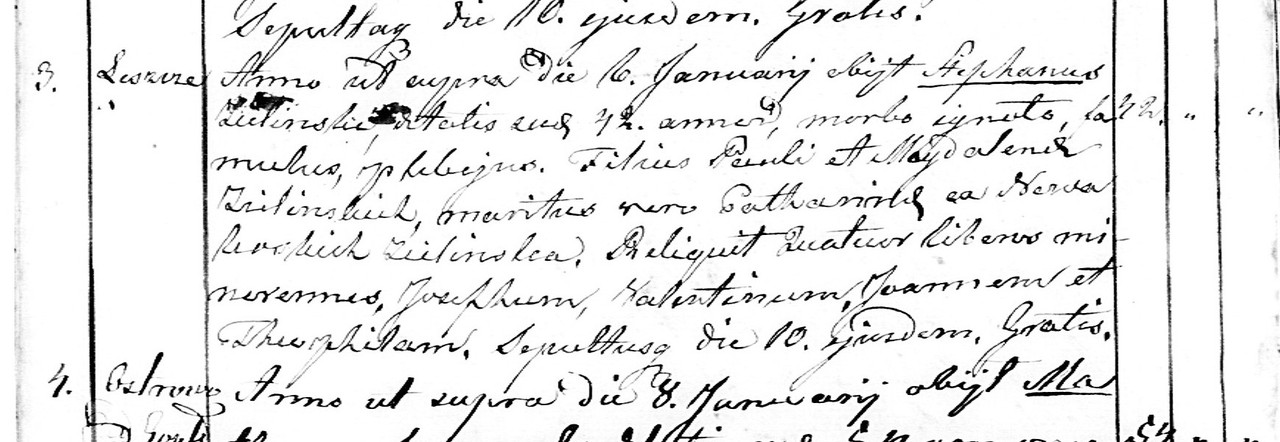 Sepultusq die 10. ejusdem. Gratis.
3. Leszcze Anno ut supra die 6. Januarij obijt Stephanus
Zielinski ætatis suæ 42. annor, morbo ignoto, fa 42. " "
mulus, plebejus. Filius Pauli et Magdalenæ
Zielinskich, maritus vero Catharinæ ea Nowa
kowskich Zielinska. Reliquit Quatuor liberos mi-
norennes, Josephum, Valentinum, Joannem et
Theophilam. Sepultusq die 10. ejusdem. Gratis.
4. Ostrowo Anno ut supra die 8. Januarij obijt Ma